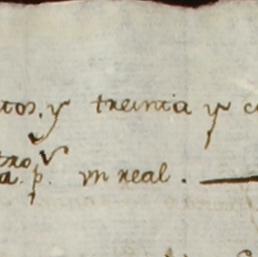 tos. y treinta y c
tro
a. p. un real.